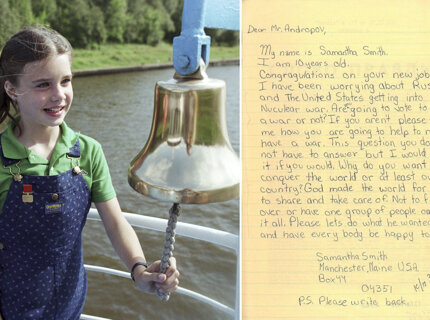 Dear Mr. Andropov,
My name is Samantha Smith.
I am 10 years old.
Congratulations on your new job.
I have been worrying about Rus
and The United States getting into
Nuculear war. Are going to vote to
a war or not? If you arent please
me how you are going to help to n
have a war. This question you do
not have to answer but I would
it if you would. Why do you want
conquer the world or at least ou
country? God made the world for
to share and take care of. Not to f
over or have one group of people ow
it all. Please lets do what he wante
and have every body be happy to
Samantha Smith
Manchester, Maine USA
Box 44
04351
P.S. Please write back.